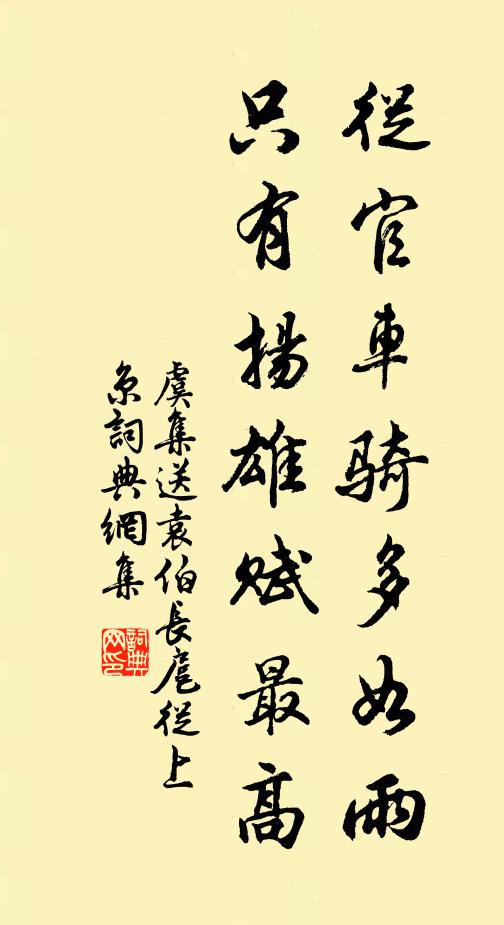 從官車騎多如雨
只有揚雄賦最高
虞集送袁伯長扈從上
京詞典網集
詞典
网印